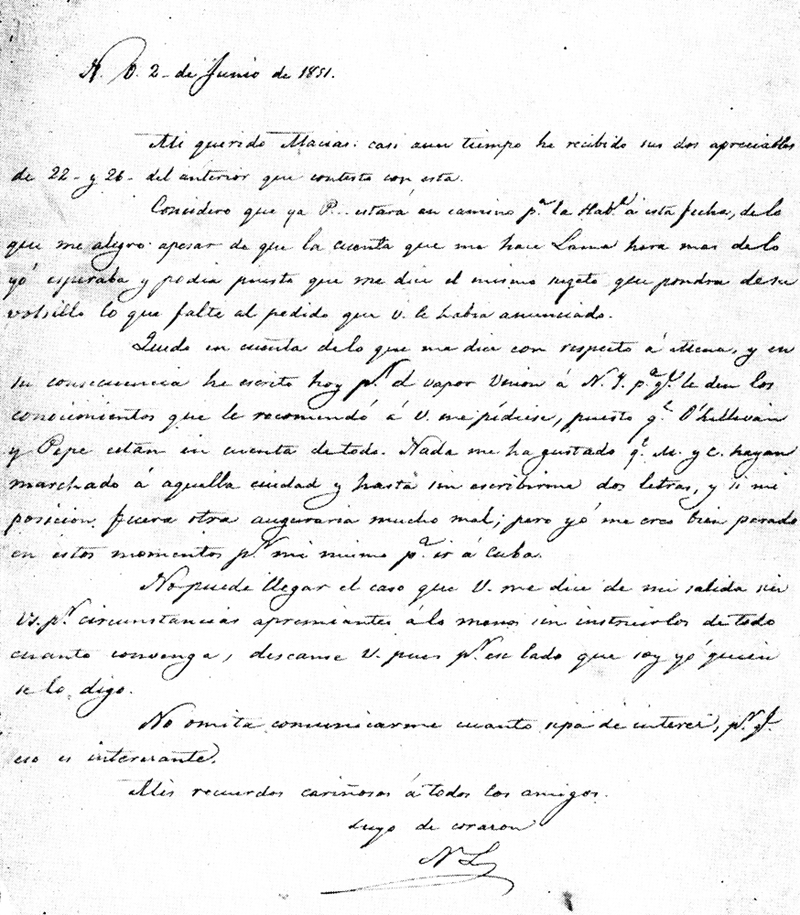 N. O. 2 de Junio de 1851.
Mi querido Macias: casi aun tiempo he recibido sus dos apreciables
de 22 y 26 del anterior que contesto con esta.
Concidero que ya P... estará en camino pª la Habª á esta fecha, de lo
que me alegro apesar de que la cuenta que me hace Lama hera mas de lo
yó esperaba y podia puesto que me dice el mismo sugeto que pondra de su
volsillo lo que falte al pedido que V. le habia anunciado.
Quedo en cuenta de lo que me dice con respeto á Mena, y en
su consecuencia he escrito hoy pr el vapor Union á N. Y. pª qe le den los
conocimientos que le recomendó á V. me pidiese, puesto qe O'Sullivan
y Pepe estan en cuenta de todo. Nada me ha gustado qe M. y C. hayan
marchado á aquella ciudad y hasta sin escribirme dos letras, y si mi
posicion fuera otra auguraria mucho mal; pero yó me creo bien parado
en estos momentos pr mi mismo pª ir á Cuba.
No puede llegar el caso que V. me dice de mi salida sin
Vs. pr circunstancias apremiantes á lo menos sin instruirlos de todo
cuanto convenga, descanse V. pues pr ese lado que soy yó quien
se lo digo.
No omita comunicarme cuanto sepa de interes, pr qe
eso es interesante.
Mis recuerdos cariñosos á todos los amigos.
Suyo de corazon
N L